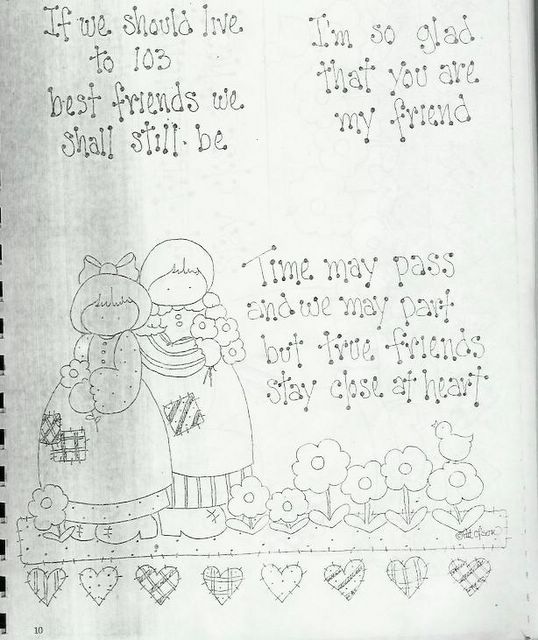 If we should live
to 103
best friends we
shall still be
I'm so glad
that you are
my friend
Time may pass
and we may part
but true friends
stay close at heart
10